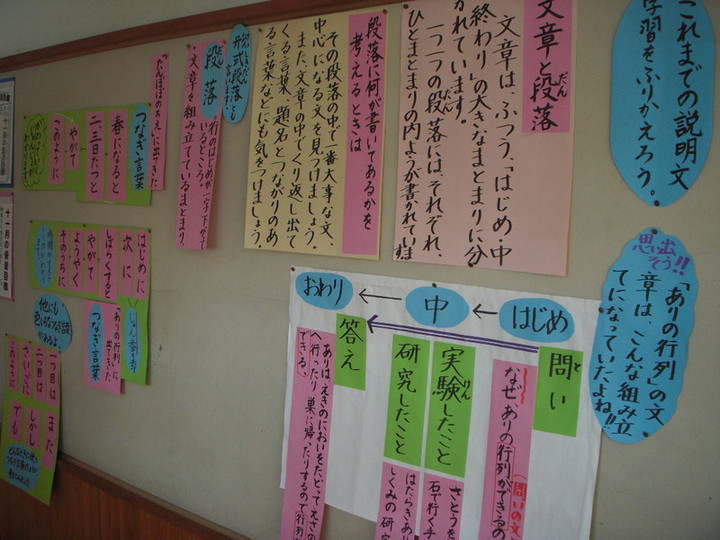 これまでの説明文
学習をふりかえろう。
思い出そう!!
「ありの行列」の文
章は、こんな組み立
てになっていたよね!!
文章と段落
文章は、ふつう、「はじめ・中
終わり」の大きなまとまりに分
かれています。
一つ一つの段落には、それぞれ、
ひとまとまりの内ようが書かれています
段落に何が書いてあるかを
考えるときは
その段落の中で一番大事な文、
中心になる文を見つけましょう。
また、文章の中でくり返し出て
くる言葉、題名とつながりのあ
る言葉などにも気をつけましょう。
形式段落とも
言います。
段落
行のはじめが一字下がって
いるところ
文章を組み立てているまとまり
はじめ
中
おわり
問い
(問いの文
なぜ、ありの行列ができるの
実験したこと
研究したこと
さとうを
石で行く手
はたらきあり
しくみの研究
答え
ありは、えきのにおいをたどって、えさの
へ行ったり、巣に帰ったりするので、行列が
できる。
たんぽぽのちえに出てきた
つなぎ言葉
春になると
二、三日たつと
やがて
このように
はじめに
次に
しばらくすると
やがて
ようやく
そのうちに
「ありの行列」に
出てきた
つなぎ言葉
他にも
色いろなつなぎ言葉
があるよ
一つ目は
二つ目は
さいごに
このように
また
しかし
でも
十一月の保健目標